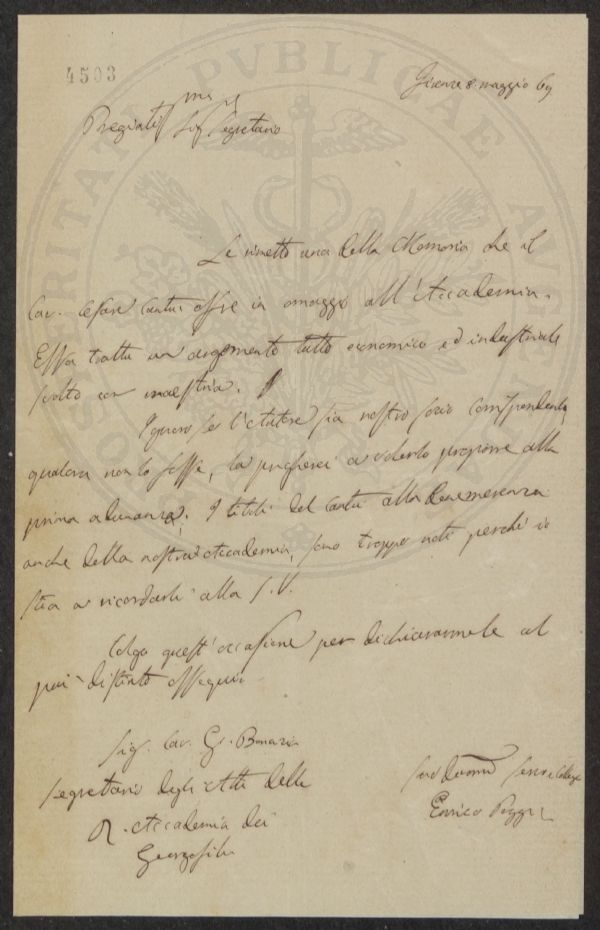 4503
Firenze 8. maggio 69
Pregiatiss.mo Sig.r Segretario
Le rimetto una della Memoria che il
Cav. Cesare Cantù offre in omaggio all'Accademia.
Essa tratta un argomento tutto economico ed industriale
svolto con maestria.
Ignoro se l'Autore sia nostro socio corrispondente,
qualora non lo fosse, la pregherei a volerlo proporre alla
prima adunanza. I titoli del Cantù alla benemerenza
anche della nostra Accademia, sono troppo noti perché io
stia a ricordarli alla S.V.
Colgo quest'occasione per dichiararmele col
più distinto ossequio
Sig. Cav. G.
Segretario degli Atti della
R. Accademia dei
Georgofili
Suo Devmo Serv e Collega
Enrico Poggi
PROSPERITATI PVBLICAE AVGENDAE